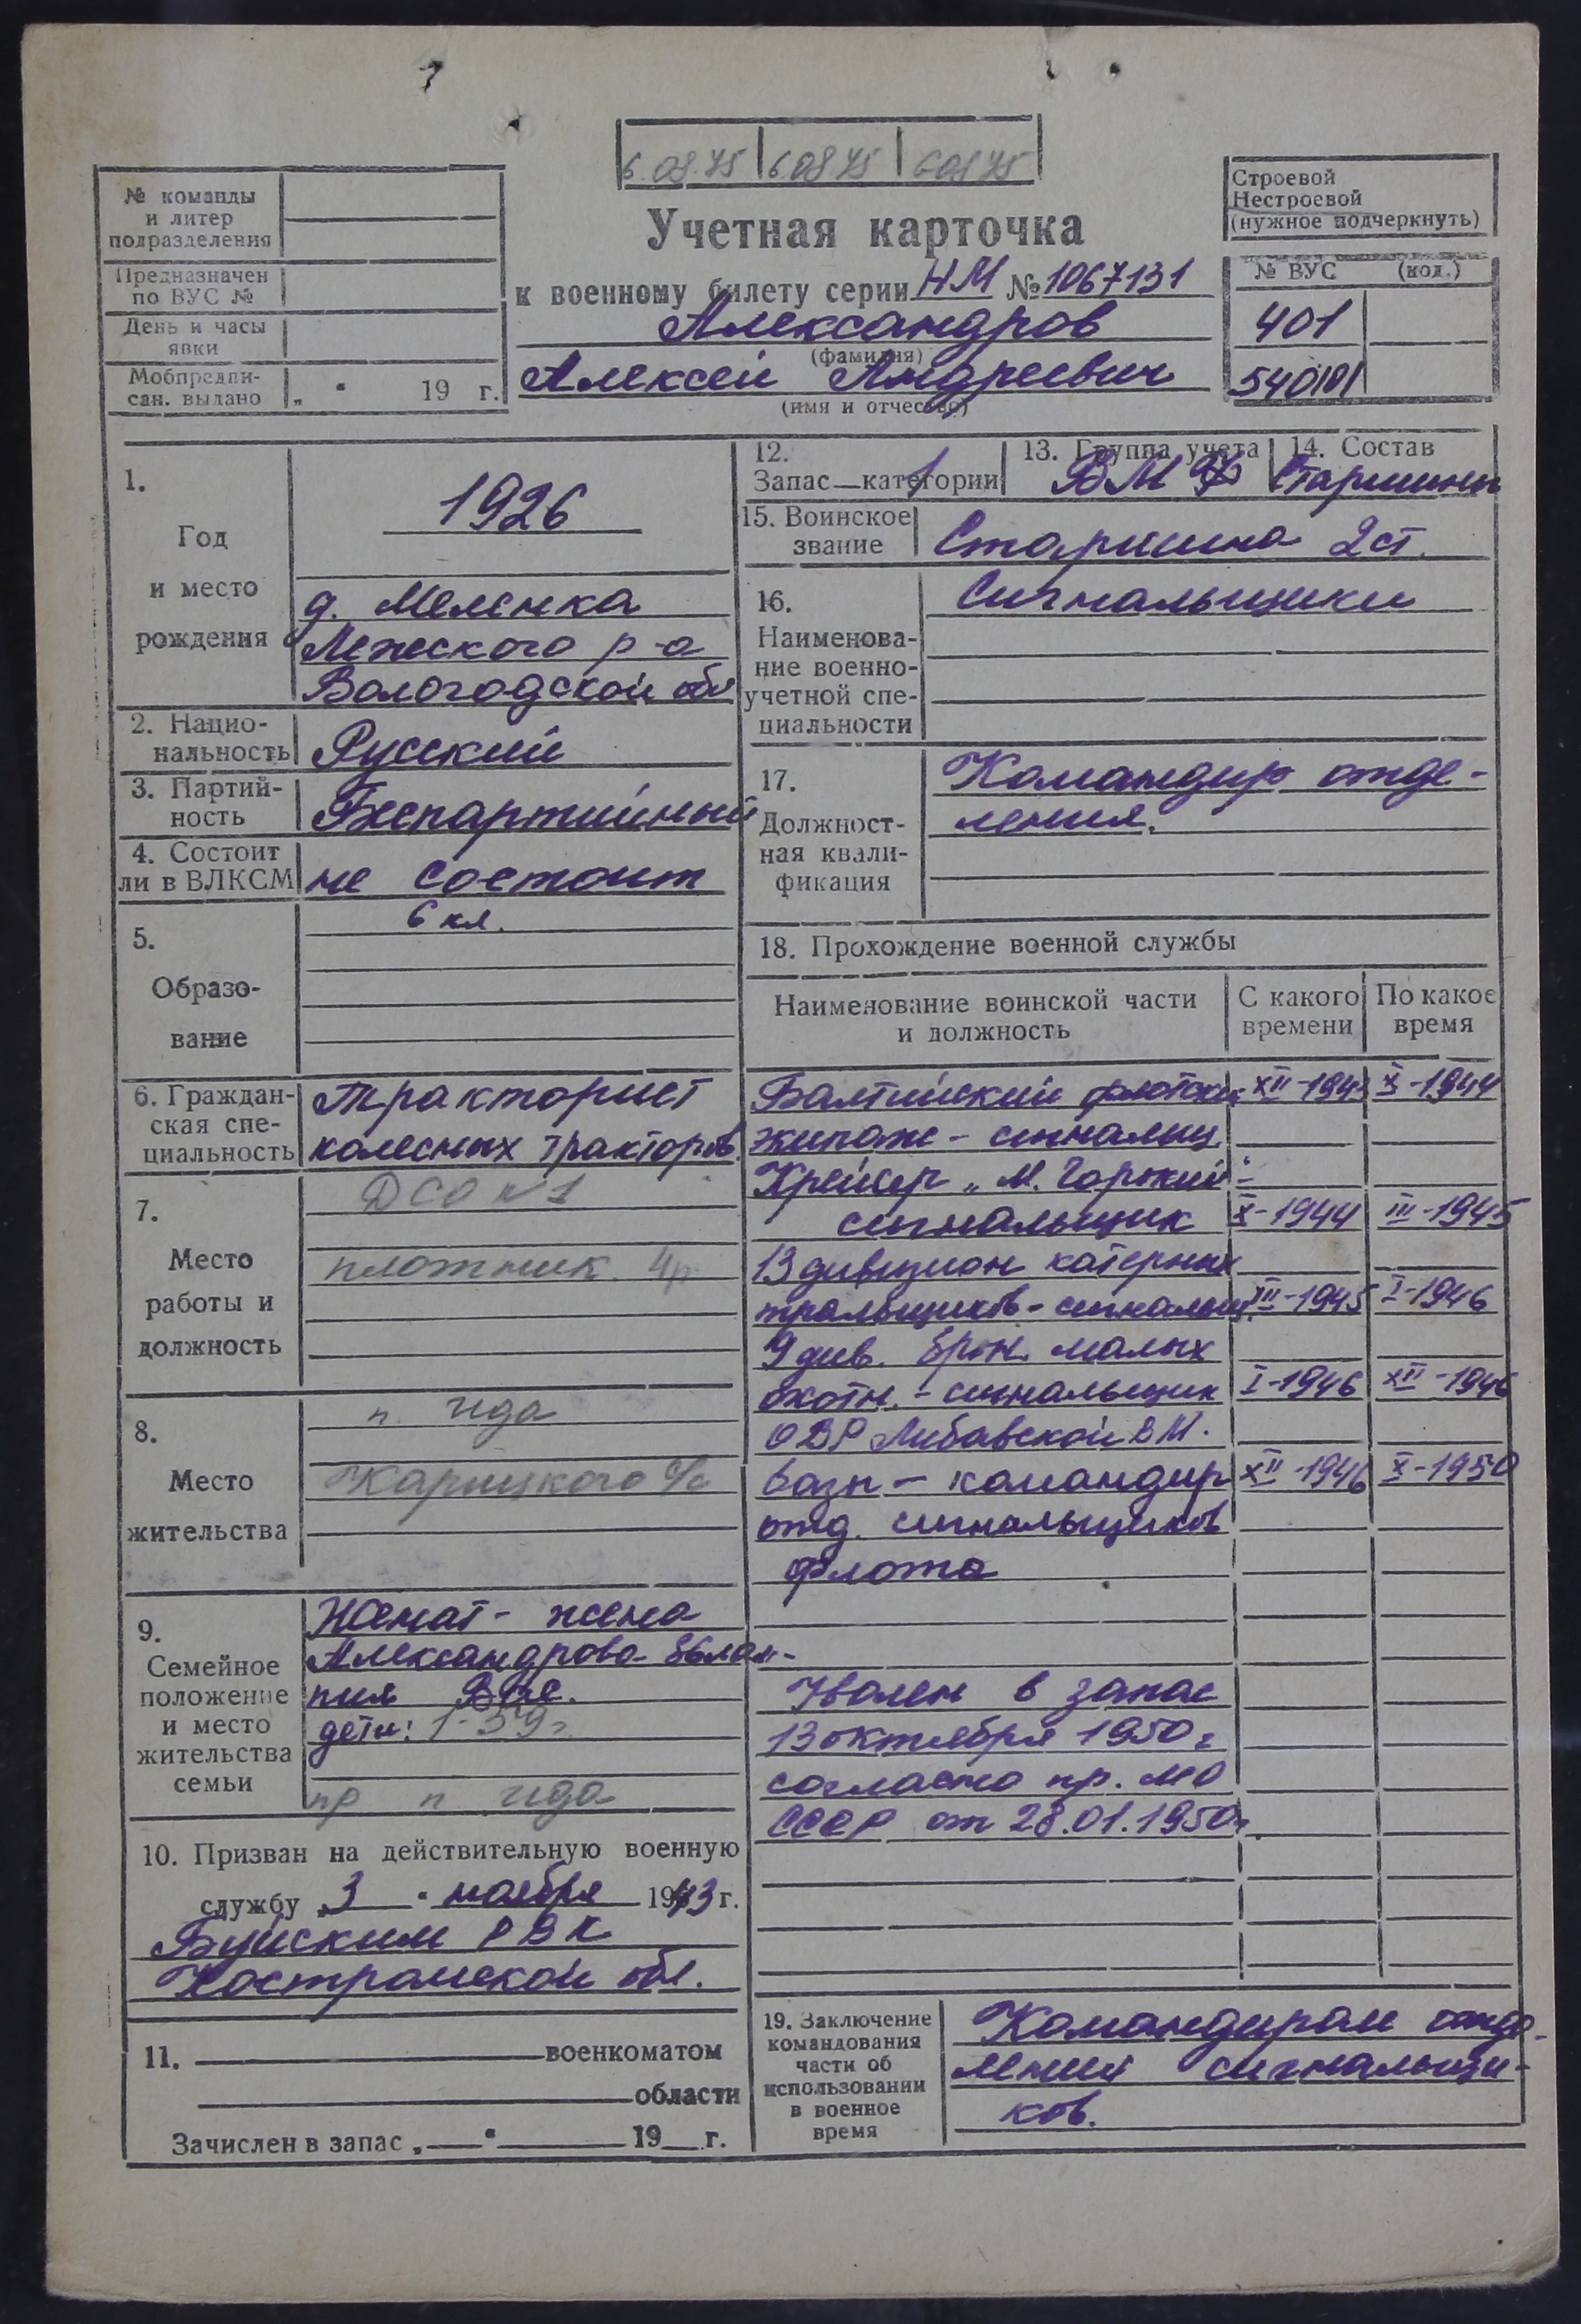 6.08.75 6.08.75 6.08.75
№ команды
и литер
подразделения
Предназначен
по ВУС №
День и часы
явки
Мобпредпи-
сан. выдано „ “ 19 г.
Учетная карточка
к военному билету серии НМ № 1067131
Александров
(фамилия)
Алексей Андреевич
(имя и отчество)
Строевой
Нестроевой
(нужное подчеркнуть)
№ ВУС (код.)
401
540101
1.
Год
и место
рождения
1926
д. Меленка
Лежского р-а
Вологодской обл
2. Нацио-
нальность
Русский
3. Партий-
ность
Беспартийный
4. Состоит
ли в ВЛКСМ
не состоит
5.
Образо-
вание
6 кл.
6. Граждан-
ская спе-
циальность
Тракторист
колесных тракторов
7.
Место
работы и
должность
ДСО №1
плотник 4р
8.
Место
жительства
п. Ида
Карицкого с/с
9.
Семейное
положение
и место
жительства
семьи
Женат - жена
Александрова Евлам-
пия Вас.
дети: 1-59г
пр п Ида
10. Призван на действительную военную
службу „3“ ноября 1943 г.
Буйским РВК
Костромской обл.
11. военкоматом
области
Зачислен в запас „ “ 19 г.
12.
Запас 1 категории
13. Группа учета
ВМФ
14. Состав
Старшины
15. Воинское
звание
Старшина 2 ст.
16.
Наименова-
ние военно-
учетной спе-
циальности
Сигнальщики
17.
Должност-
ная квали-
фикация
Командир отде-
ления.
18. Прохождение военной службы
Наименование воинской части
и должность
С какого
времени
По какое
время
Балтийский флотский XII-1943 X-1944
экипаж - сигнальщ.
Крейсер „М. Горький“-
сигнальщик X-1944 III-1945
13 дивизион катерных
тральщиков - сигнальщ. III-1945 I-1946
9 див. брон. малых
охотн. - сигнальщик I-1946 XII-1946
ОВР Либавской ВМ.
базы - командир XII-1946 X-1950
отд. сигнальщиков
флота
Уволен в запас
13 октября 1950 г
согласно пр. МО
СССР от 28.01.1950г.
19. Заключение
командования
части об
использовании
в военное
время
Командиром отде-
ления сигнальщи-
ков.